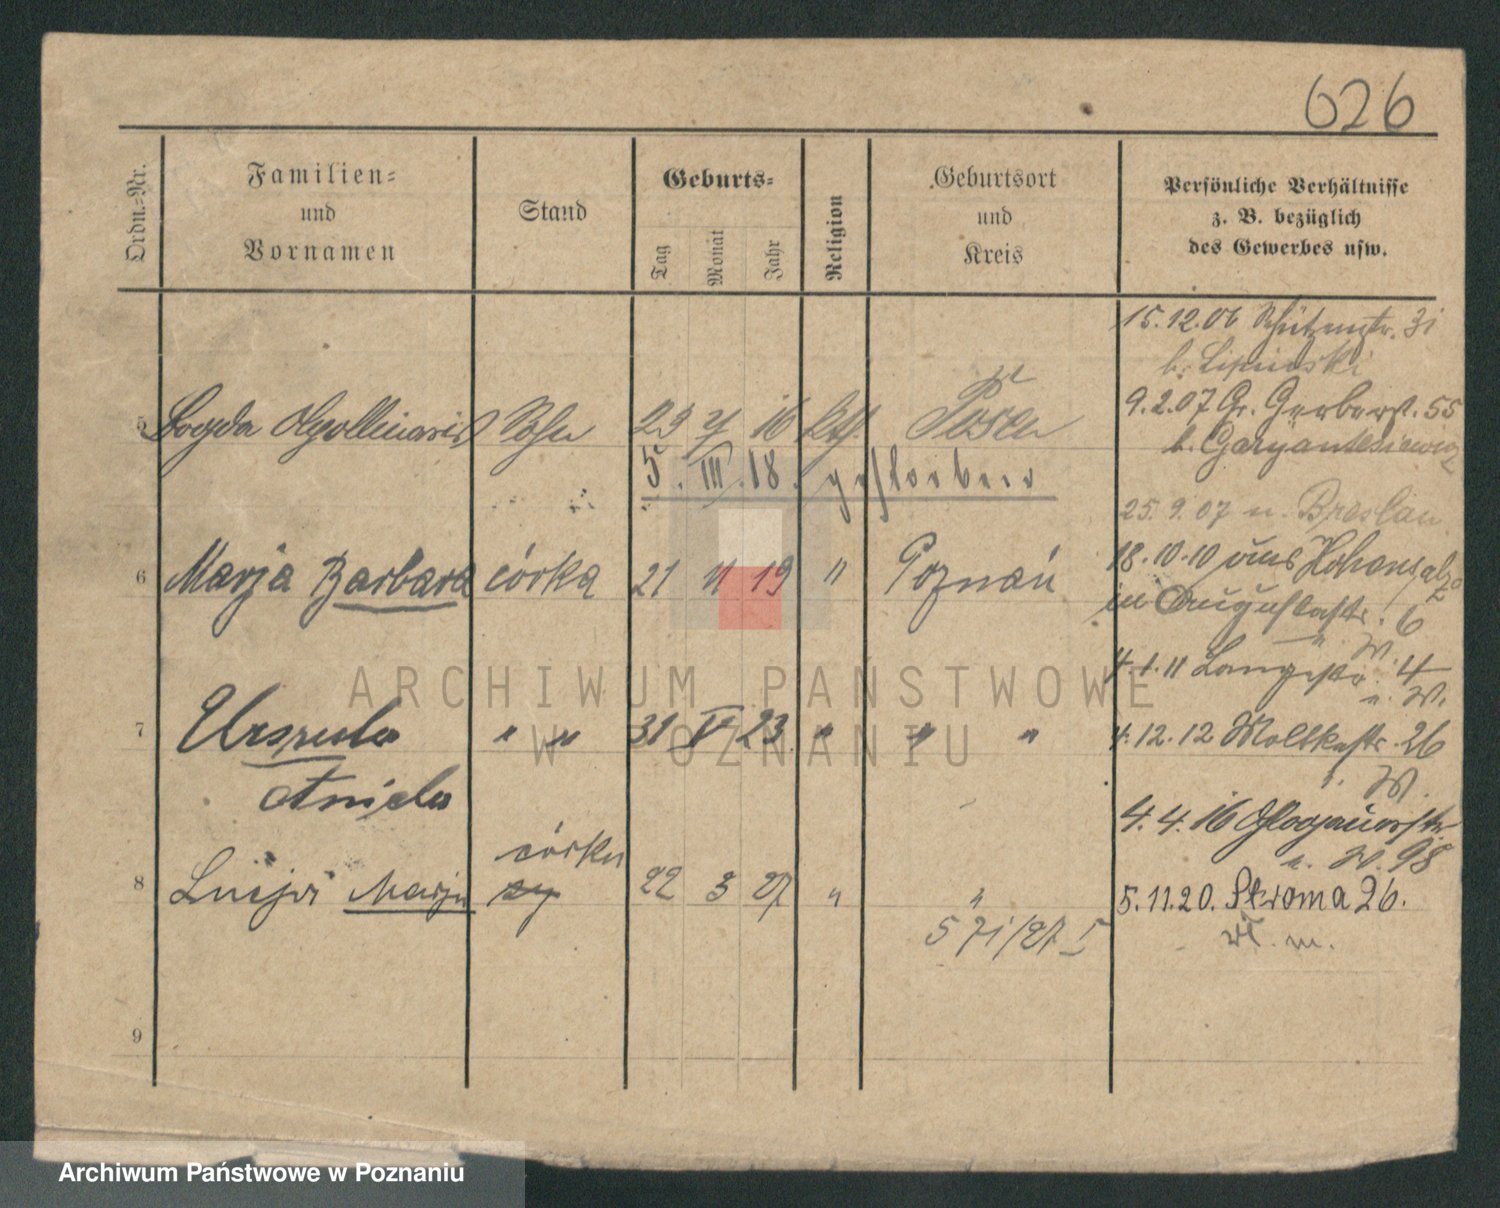 626
Ordn.-Nr.
Familien-
und
Vornamen
Stand
Geburts-
Tag
Monat
Jahr
Religion
Geburtsort
und
Kreis
Persönliche Verhältnisse
z. B. bezüglich
des Gewerbes usw.
15.12.06 Schützenstr. 31
b. Lipinski
9.2.07 Gr. Gerberst. 55
b.
5 Bogda Apollinaris Sohn 23 7 16 kth. Posen
5. III. 18. gestorben
25.9.07 n. Breslau
6 Marja Barbara córka 21 11 19 " Poznań
18.10.10 aus Hohensalza
in Augustastr. 6
u. W.
4.1.11 Langestr. 4
u. W.
7 Urszula " " 31 V 23 " " "
Aniela
4.12.12 Moltkestr. 26
u. W.
4.4.16 Glogauerstr.
u. W. 98
8 Lucja Marja córka sy 22 3 27 " "
5.11.20. Stroma 26.
W. m.
9
ARCHIWUM PAŃSTWOWE
W POZNANIU
Archiwum Państwowe w Poznaniu